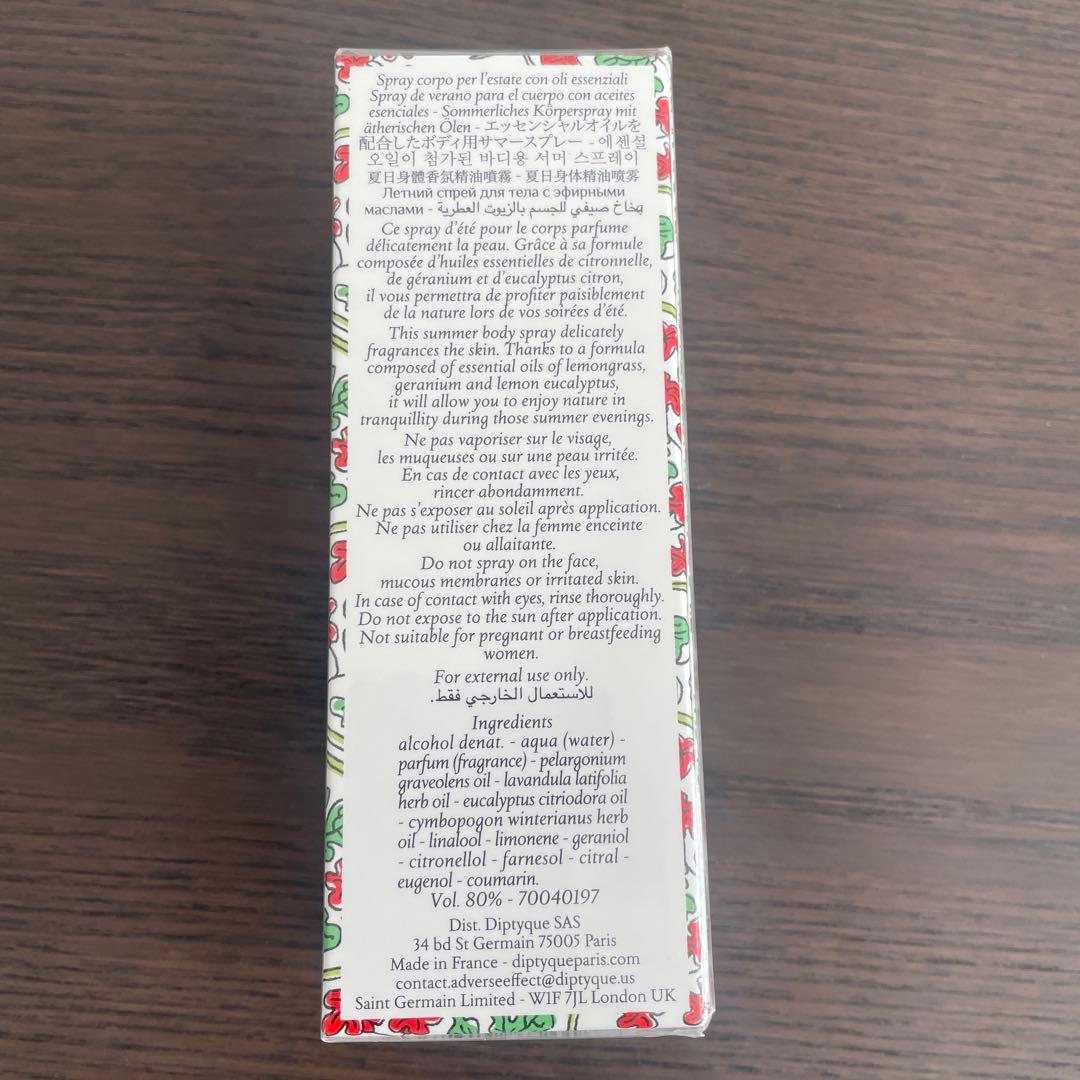 Spray corpo per l'estate con oli essenziali
Spray de verano para el cuerpo con aceites
esenciales - Sommerliches Körperspray mit
ätherischen Ölen - エッセンシャルオイルを
配合したボディ用サマースプレー - 에센셜
오일이 첨가된 바디용 서머 스프레이
夏日身體香氛精油噴霧 - 夏日身体精油喷雾
Летний спрей для тела с эфирными
маслами - بخاخ صيفي للجسم بالزيوت العطرية
Ce spray d'été pour le corps parfume
délicatement la peau. Grâce à sa formule
composée d'huiles essentielles de citronnelle,
de géranium et d'eucalyptus citron,
il vous permettra de profiter paisiblement
de la nature lors de vos soirées d'été.
This summer body spray delicately
fragrances the skin. Thanks to a formula
composed of essential oils of lemongrass,
geranium and lemon eucalyptus,
it will allow you to enjoy nature in
tranquillity during those summer evenings.
Ne pas vaporiser sur le visage,
les muqueuses ou sur une peau irritée.
En cas de contact avec les yeux,
rincer abondamment.
Ne pas s'exposer au soleil après application.
Ne pas utiliser chez la femme enceinte
ou allaitante.
Do not spray on the face,
mucous membranes or irritated skin.
In case of contact with eyes, rinse thoroughly.
Do not expose to the sun after application.
Not suitable for pregnant or breastfeeding
women.
For external use only.
للاستعمال الخارجي فقط.
Ingredients
alcohol denat. - aqua (water) -
parfum (fragrance) - pelargonium
graveolens oil - lavandula latifolia
herb oil - eucalyptus citriodora oil
- cymbopogon winterianus herb
oil - linalool - limonene - geraniol
- citronellol - farnesol - citral -
eugenol - coumarin.
Vol. 80% - 70040197
Dist. Diptyque SAS
34 bd St Germain 75005 Paris
Made in France - diptyqueparis.com
contact.adverseeffect@diptyque.us
Saint Germain Limited - W1F 7JL London UK